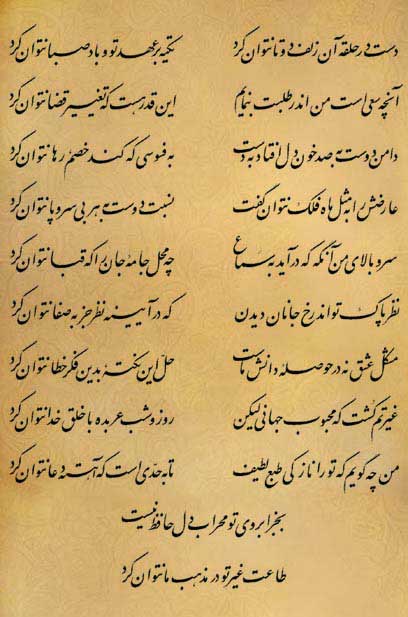 دست در حلقه آن زلف دوتا نتوان کرد تکیه بر عهد تو و باد صبا نتوان کرد
آنچه سعی است من اندر طلبت بنمایم این قدر هست که تغییر قضا نتوان کرد
دامن دوست به صد خون دل افتاد به دست به فسوسی که کند خصم رها نتوان کرد
عارضش را به مثل ماه فلک نتوان گفت نسبت دوست به هر بی سر و پا نتوان کرد
سرو بالای من آنگه که درآید به سماع چه محل جامه جان را که قبا نتوان کرد
نظر پاک تواند رخ جانان دیدن که در آیینه نظر جز به صفا نتوان کرد
مشکل عشق نه در حوصله دانش ماست حل این نکته بدین فکر خطا نتوان کرد
غیرتم کشت که محبوب جهانی لیکن روز و شب عربده با خلق خدا نتوان کرد
من چه گویم که تو را نازکی طبع لطیف تا به حدی است که آهسته دعا نتوان کرد
بجز ابروی تو محراب دل حافظ نیست
طاعت غیر تو در مذهب ما نتوان کرد